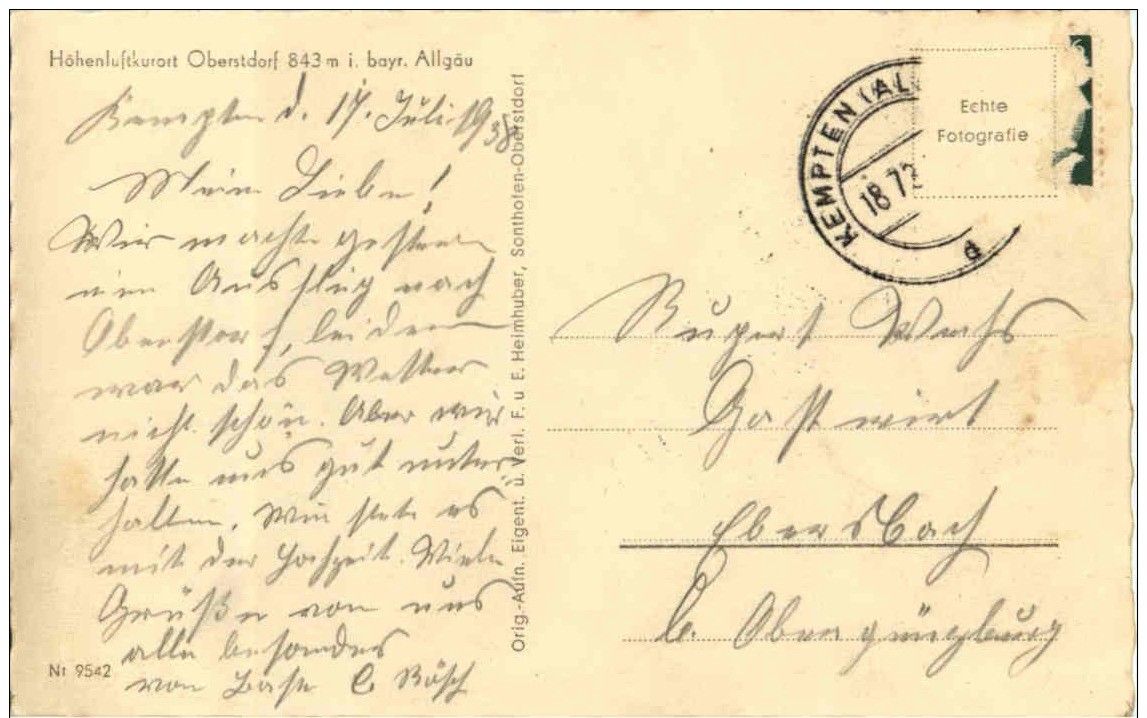 Höhenluftkurort Oberstdorf 843 m i. bayr. Allgäu
Kempten d. 17. Juli 1938
Mein Liebe!
Wir machte gestern
einen Ausflug nach
Oberstorf, leider
war das Wetter
nicht schön. Aber wir
hatte uns gut unter
halten. Wie stete es
mit der Hochzeit. Viele
Grüße von uns
alle besonders
von Base C Bösch
Nr 9542
Orig.-Aufn. Eigent. u. Verl. F. u E. Heimhuber, Sonthofen-Oberstdorf
KEMPTEN (AL
18 7
d
Echte
Fotografie
Rupert
Gastwirt
Ebersbach
b. Obergünzburg